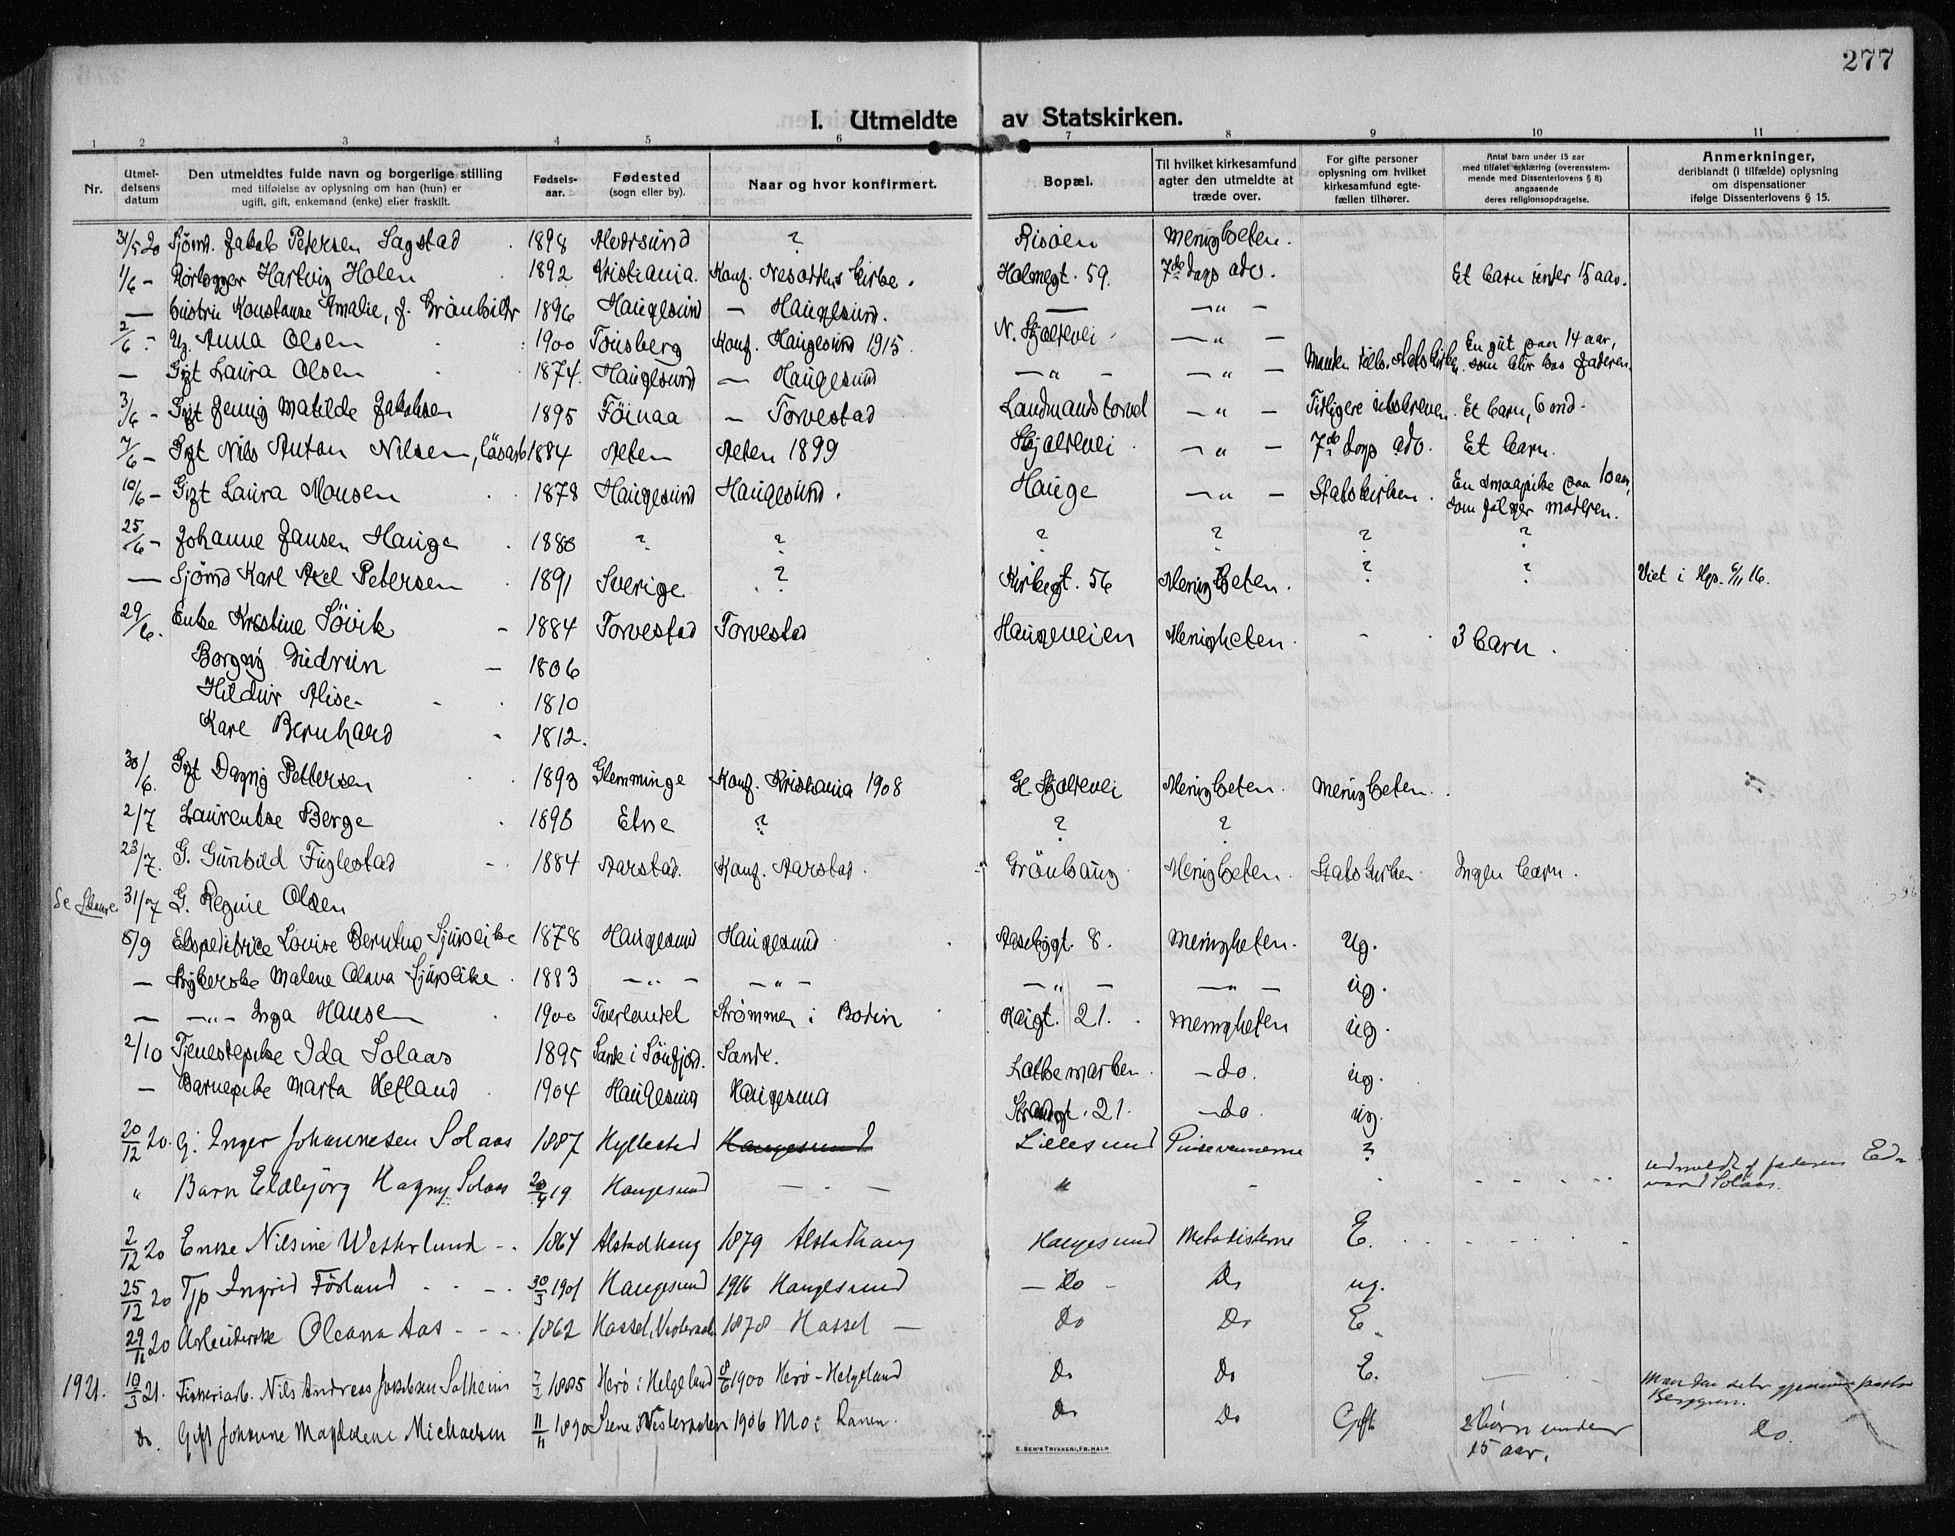 277
I. Utmeldte av Statskirken.
1 2 3 4 5 6 7 8 9 10 11
Nr.
Utmeldelsens datum
Den utmeldtes fulde navn og borgerlige stilling
med tilføielse av oplysning om han (hun) er
ugift, gift, enkemand (enke) eller fraskilt.
Fødselsaar.
Fødested
(sogn eller by).
Naar og hvor konfirmert.
Bopæl.
Til hvilket kirkesamfund
agter den utmeldte at
træde over.
For gifte personer
oplysning om hvilket
kirkesamfund egte-
fællen tilhører.
Antal barn under 15 aar
med tilføiet erklæring (overensstem-
mende med Dissenterlovens § 8)
angaaende
deres religionsopdragelse.
Anmerkninger,
deriblandt (i tilfælde) oplysning
om dispensationer
ifølge Dissenterlovens § 15.
31/5 20 Sjømd. Jakob Petersen Sagstad 1898 ? Risøen Menigheten.
1/6 – Rørlegger Hartvig Holen 1892 Kristiania. Konf. Nesoddens kirke. Holmegt. 59. 7de dags adv. Et barn under 15 aar.
— hustru Konstanse Amalie, f. 1896 Haugesund – Haugesund. — – „ –
2/6 – Ug. Anna Olsen 1900 Tønsberg Konf. Haugesund 1915. N. Skjoldevei – „ – En gut paa 14 aar,
— Gift Laura Olsen 1874. Haugesund — Haugesund – „ – – „ – Manden tilh. Statskirken. som blir hos faderen.
3/6 – Gift Jenny Matilde Jakobsen 1895 Föinaa – Torvestad Landmandstorvet – „ – Tidligere utskreven. Et barn, 6 mnd.
7/6 – Gift Nils Anton Nilsen, løsarb 1884 Aalen Aalen 1899 Skjoldevei – „ – 7de dags adv. Et barn.
10/6 – Gift Laura Monsen 1878 Haugesund Haugesund. Hauge – „ – Statskirken. En smaapike paa 10 aar,
som følger moderen.
25/6 – Johanne Jansen Hauge 1880 ? ? ? ? ? ?
— Sjømd Karl Axel Petersen 1891 Sverige ? Kirkegt. 56 Menigheten. ? ? Viet i Hgs. 6/11 16.
29/6. Enke Kristine Søvik – 1884 Torvestad Torvestad Haugeveien Menigheten. – 3 barn.
Borgny Gudrun – 1806
Hildur Alise – 1810
Karl Bernhard – 1812.
30/6. Gift Dagny Pettersen 1893 Glemminge Konf. Kristiania 1908 Gl. Skjoldevei Menigheten. Menigheten.
2/7 Laurentse Berge 1896 Etne ? ? ?
23/7. G. Gunhild Fuglestad 1884 Aarstad. Konf. Aarstad. Grönhaug Menigheten. Statskirken Ingen barn.
Se 31/7 G. Regine Olsen
8/9 Ekspeditrice Lovise Berntine 1878 Haugesund Haugesund Aasebygt. 8. Menigheten. Ug.
— Malene Olava 1883 – „ – – „ – – „ – – „ – ug.
— – „ – Inga Hansen 1900 Tverlandet Strømmen i Bodin Kaigt. 21. Menigheten ug.
2/10 Tjenestepike Ida Solaas 1895 Sande i Söndfjord. Sande. Lothemarken – do. ug.
— Barnepike Marta Hetland 1904 Haugesund Haugesund Strandgt. 21. – do. ug.
20/12 20. G. Inger Johannesen Solaas 1887 Hyllestad Haugesund Lillesund Pinsevennerne ?
„ Barn Eldbjørg Hagny Solaas 19 Haugesund – – – „ – – udmeldt af faderen Ed-
vard Solaas.
2/12 20 Enke Nilsine Westerlund 1864 Alstadhaug 1879 Alstadhaug Haugesund Metodisterne E.
25/12 20 Tjp Ingrid Førland 30/3 1901 Haugesund 1916 Haugesund – Do – Do ug.
29/11 20 Arbeiderske Oleana Aas 1862 Hassel, Vesteraalen 1878 Hassel — Do Do E.
1921. 10/3 21. Fiskeriarb. Nils Andreas Jakobsen Solheim 7/2 1885 Herø i Helgeland 8/6 1900 Herø – Helgeland Do Do E. –
do. Gift Johanne Magdalene Michaelsen 11/11 1890 1906 Mo i Ranen. Do Do Gift 2 børn under
15 aar. Do.
E. SEM'S TRYKKERI, FR.HALD